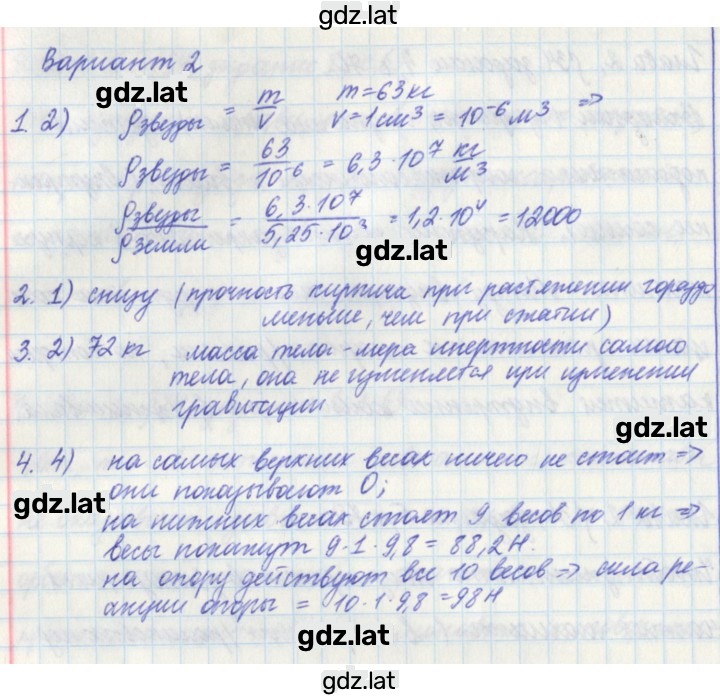 gdz.lat
Вариант 2
gdz.lat
1. 2) ρзвезды = m/V m=63кг V=1см³=10⁻⁶м³ =>
ρзвезды = 63/10⁻⁶ = 6,3·10⁷ кг/м³
ρзвезды/ρземли = 6,3·10⁷/5,25·10³ = 1,2·10⁴ = 12000
gdz.lat
2. 1) снизу (прочность кирпича при растяжении гораздо
меньше, чем при сжатии)
3. 2) 72 кг масса тела - мера инертности самого
тела, она не изменяется при изменении
гравитации
gdz.lat
4. 4) на самых верхних весах ничего не стоит =>
они показывают 0;
gdz.lat
на нижних весах стоят 9 весов по 1 кг =>
весы покажут 9·1·9,8 = 88,2Н.
на опору действуют все 10 весов => сила ре-
акции опоры = 10·1·9,8=98Н
gdz.lat
gdz.lat